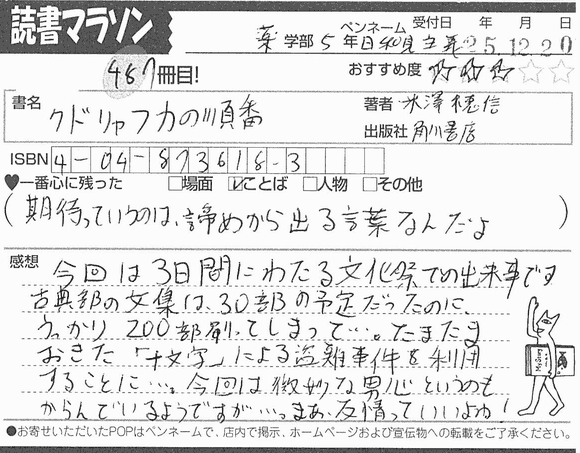 読書マラソン
ペンネーム 受付日 年 月 日
薬学部5年 25.12.20
467冊目!
おすすめ度 ☆☆☆☆☆
書名 クドリャフカの順番
著者 米澤穂信
出版社 角川書店
ISBN 4-04-873618-3
♥一番心に残った □場面 ☑ことば □人物 □その他
(期待っていうのは、諦めから出る言葉なんだよ)
感想 今回は3日間にわたる文化祭での出来事です
古典部の文集は、30部の予定だったのに、
うっかり200部刷ってしまって…。たまたま
おきた「十文字」による盗難事件を利用
することに…。今回は微妙な男心というのも
からんでいるようですが…。まあ、友情っていいよね!
Mystery
●お寄せいただいたPOPはペンネームで、店内で掲示、ホームページおよび宣伝物への転載をご了承ください。